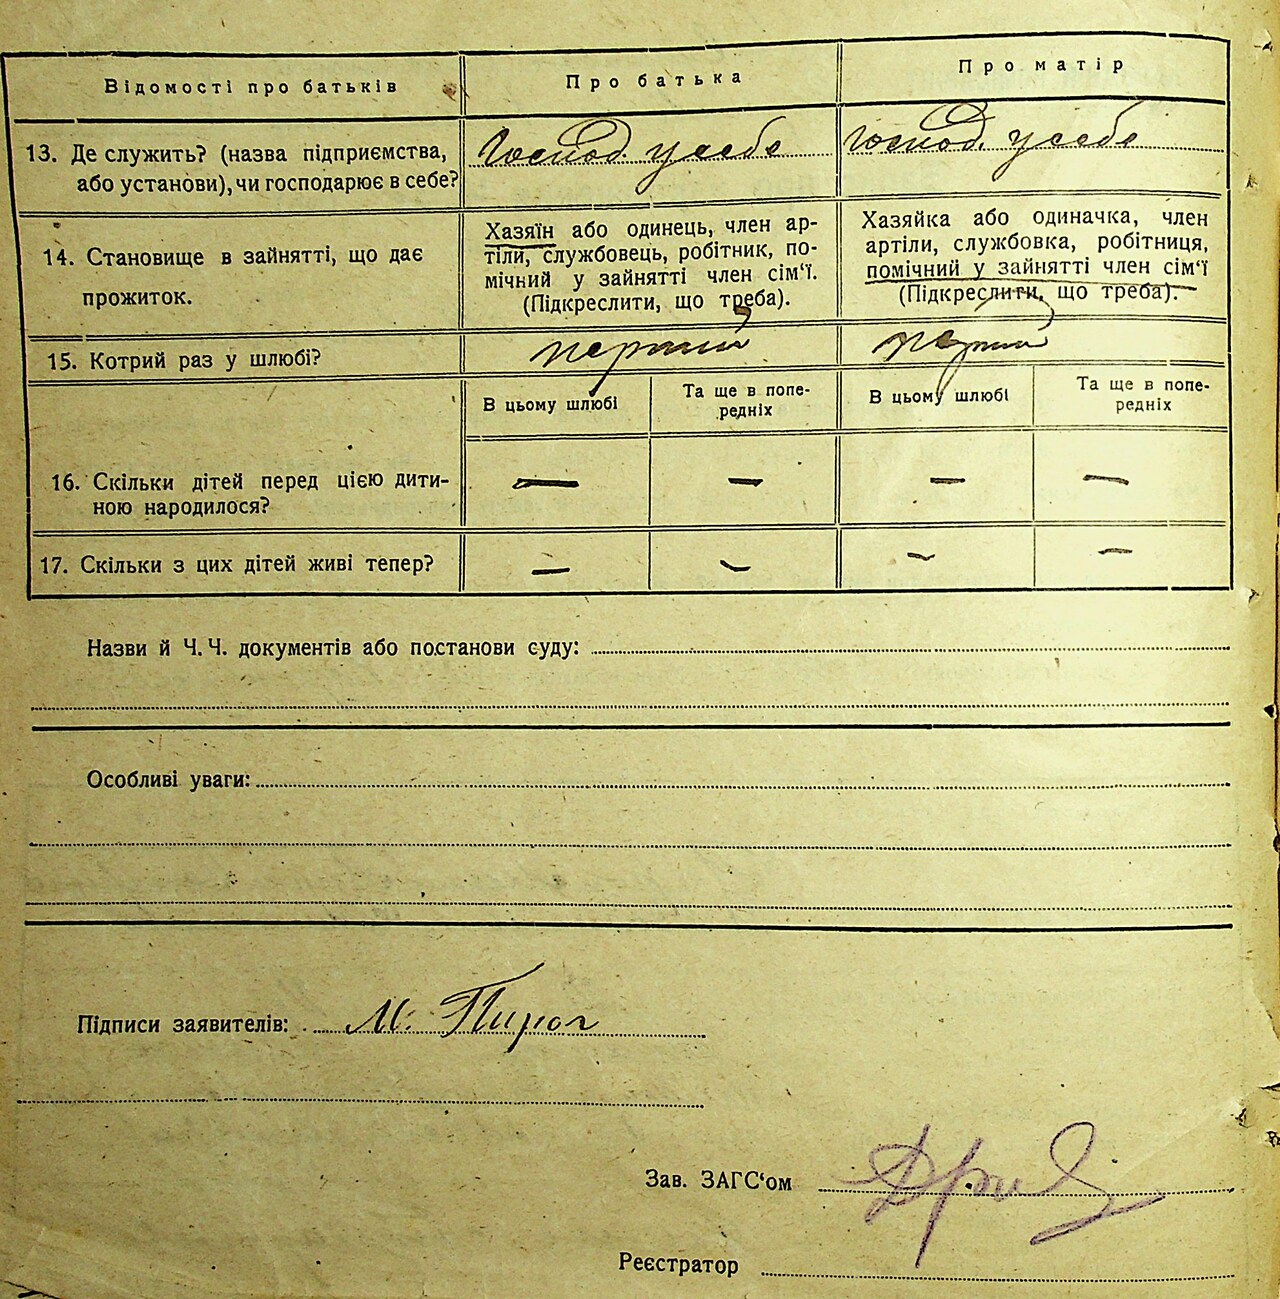 Відомості про батьків
Про батька
Про матір
13. Де служить? (назва підприємства,
або установи), чи господарює в себе?
Господ. у себе
Господ. у себе
14. Становище в зайнятті, що дає
прожиток.
Хазяїн або одинець, член ар-
тіли, службовець, робітник, по-
мічний у зайнятті член сім‘ї.
(Підкреслити, що треба).
Хазяйка або одиначка, член
артіли, службовка, робітниця,
помічний у зайнятті член сім‘ї
(Підкреслити, що треба).
15. Котрий раз у шлюбі?
перший
перший
В цьому шлюбі
Та ще в попе-
редніх
В цьому шлюбі
Та ще в попе-
редніх
16. Скільки дітей перед цією дити-
ною народилося?
— — — —
17. Скільки з цих дітей живі тепер?
— — — —
Назви й Ч.Ч. документів або постанови суду:
Особливі уваги:
Підписи заявителів: М. Пирог
Зав. ЗАГС‘ом
Реєстратор